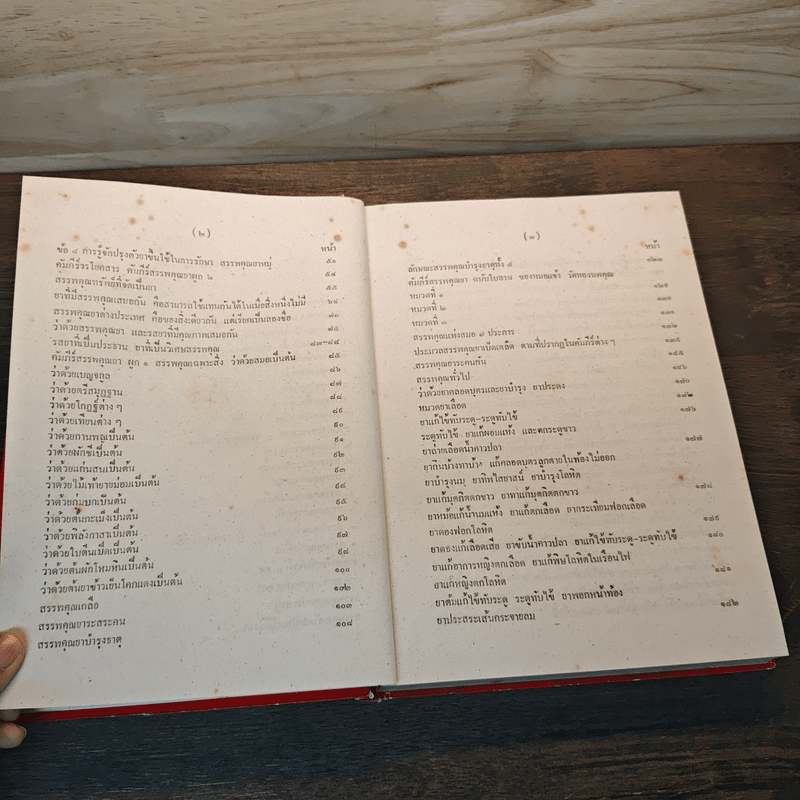 (๒)
หน้า
ข้อ ๔ การรู้จักปรุงตัวยาขึ้นใช้ในการรักษา สรรพคุณยาหมู่ ๕๑
คัมภีร์จรโยคสาร คัมภีร์สรรพคุณยาผูก ๒ ๕๔
สรรพคุณทรัพย์ที่จัดเป็นยา ๕๕
ยาที่มีสรรพคุณเสมอกัน คือสามารถใช้แทนกันได้ในเมื่อสิ่งหนึ่งไม่มี ๖๘
สรรพคุณยาต่างประเทศ คือของสิ่งเดียวกัน แต่เรียกเป็นสองชื่อ ๗๐
ว่าด้วยสรรพคุณยา และรสยาที่มีคุณภาพเสมอกัน ๗๕
รสยาที่เป็นประธาน ยาที่เป็นวิเศษสรรพคุณ ๘๓-๘๔
คัมภีร์สรรพคุณยา ผูก ๑ สรรพคุณเฉพาะสิ่ง ว่าด้วยสมอเป็นต้น ๘๕
ว่าด้วยเบญจกูล ๘๖
ว่าด้วยตรีสมุฏฐาน ๘๗
ว่าด้วยโกฏฐ์ต่าง ๆ ๘๘
ว่าด้วยเทียนต่าง ๆ ๘๙
ว่าด้วยกานพลูเป็นต้น ๙๐
ว่าด้วยผักชีเป็นต้น ๙๑
ว่าด้วยแก่นสนเป็นต้น ๙๒
ว่าด้วยไม้เท้ายายม่อมเป็นต้น ๙๓
ว่าด้วยกุ่มบกเป็นต้น ๙๔
ว่าด้วยต้นกะเมงเป็นต้น ๙๕
ว่าด้วยพิลังกาสาเป็นต้น ๙๖
ว่าด้วยใบตีนเป็ดเป็นต้น ๙๗
ว่าด้วยต้นผักโหมหินเป็นต้น ๙๘
ว่าด้วยต้นยาข้าวเย็นโคกแดงเป็นต้น ๑๐๐
สรรพคุณเกลือ ๑๐๒
สรรพคุณยาระสระคน ๑๐๓
สรรพคุณยาบำรุงธาตุ ๑๐๘
(๓)
หน้า
ลักษณะสรรพคุณบำรุงธาตุทั้ง ๔ ๑๒๗
คัมภีร์สรรพคุณยา ฉบับใบลาน ของหมอแจ้ง วัดทองนพคุณ
หมวดที่ ๑ ๑๒๙
หมวดที่ ๒ ๑๓๐
หมวดที่ ๓ ๑๓๐
สรรพคุณแห่งสมอ ๗ ประการ ๑๓๒
ประมวลสรรพคุณยาเบ็ดเตล็ด ตามที่ปรากฏในคัมภีร์ต่าง ๆ ๑๓๕
สรรพคุณยาระคนกัน ๑๔๕
สรรพคุณทั่วไป ๑๔๖
ว่าด้วยยาคลอดบุตรและยาบำรุง ยาประดง ๑๗๐
หมวดยาเลือด ๑๗๒
ยาแก้ไข้ทับระดู-ระดูทับไข้ ๑๗๖
ระดูทับไข้ ยาแก้ผอมแห้ง และตกระดูขาว
ยาถ่ายเลือดน้ำคาวปลา ๑๗๗
ยากินบ้างทาบ้าง แก้คลอดบุตรลูกตายในท้องไม่ออก
ยาบำรุงนม ยาทิพไสยาสน์ ยาบำรุงโลหิต
ยาแก้มุตกิดตกขาว ยาทาแก้มุตกิดตกขาว ๑๗๘
ยาหม้อแก้น้ำนมแห้ง ยาแก้ตกเลือด ยากระเทียมฟอกเลือด
ยาดองฟอกโลหิต ๑๗๙
ยาดองแก้เลือดเสีย ยาขับน้ำคาวปลา ยาแก้ไข้ทับระดู-ระดูทับไข้ ๑๘๐
ยาแก้อาการหญิงตกเลือด ยาแก้พิษโลหิตในเรือนไฟ
ยาแก้หญิงตกโลหิต ๑๘๑
ยาต้มแก้ไข้ทับระดู ระดูทับไข้ ยาพอกหน้าท้อง
ยาประสระเส้นกระจายลม ๑๘๒